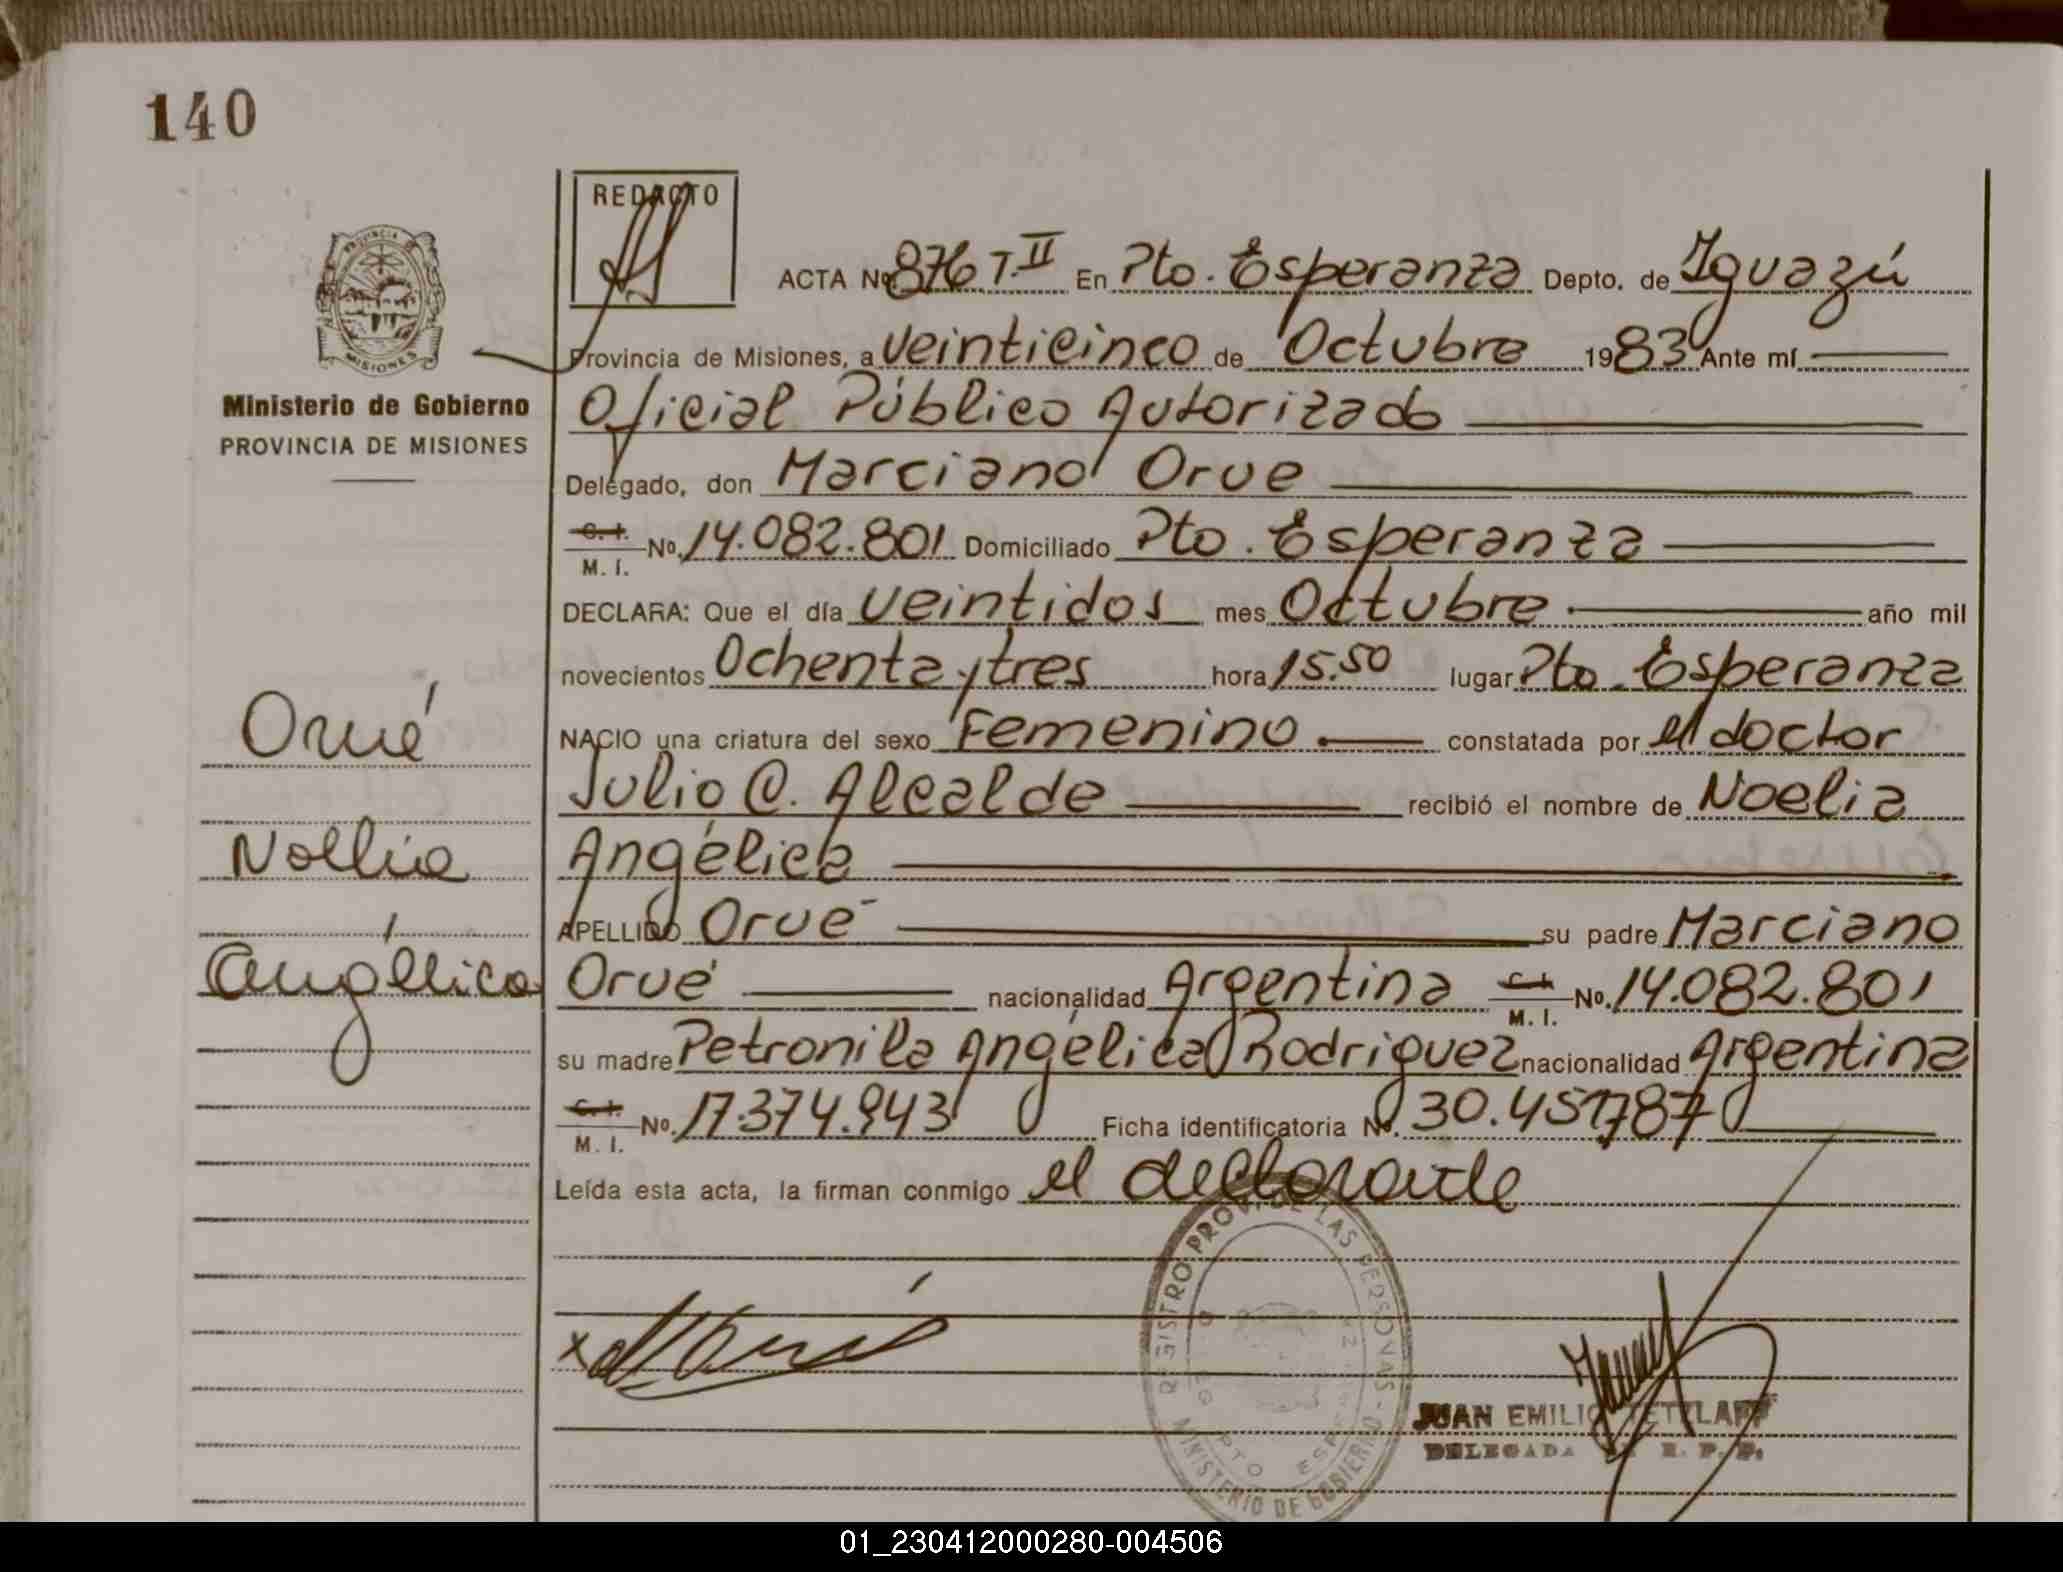 140
REDACTO
ACTA Nº 876 T.II En Pto. Esperanza Depto. de Iguazú
Provincia de Misiones, a veinticinco de Octubre 1983 Ante mí
Oficial Público Autorizado
Delegado, don Marciano Orue
C. I. M. I. Nº. 14.082.801 Domiciliado Pto. Esperanza
DECLARA: Que el día veintidos mes Octubre año mil
novecientos Ochenta y tres hora 15.50 lugar Pto. Esperanza
NACIO una criatura del sexo Femenino constatada por el doctor
Julio C. Alcalde recibió el nombre de Noelia
Angélica
APELLIDO Orué su padre Marciano
Orué nacionalidad Argentina C. I. M. I. Nº. 14.082.801
su madre Petronila Angélica Rodriguez nacionalidad Argentina
C. I. M. I. Nº. 17.374.943 Ficha identificatoria Nº. 30.451.787
Leída esta acta, la firman conmigo el declarante
PROVINCIA DE
MISIONES
Ministerio de Gobierno
PROVINCIA DE MISIONES
Orué
Noelia
Angélica
REGISTRO PROV. DE LAS PERSONAS
MINISTERIO DE GOBIERNO
PTO ESPERANZA
JUAN EMILIO TETZLAFF
DELEGADA R. P. P.
01_230412000280-004506